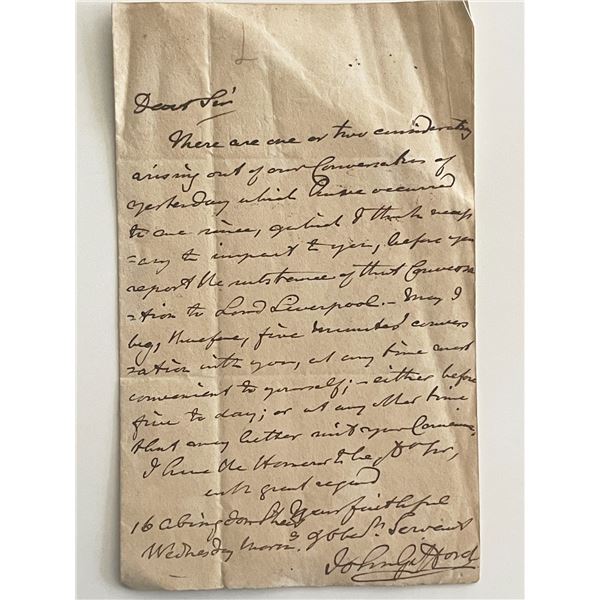 Dear Sir
There are one or two considerations
arising out of our Conversation of
yesterday which have occurred
to me since, which I think necess
=ary to impart to you, before you
report the substance of that Conversa
=tion to Lord Liverpool. – May I
beg, therefore, five minutes' convers
=ation with you, at any time most
convenient to yourself; – either before
five to day; or at any other time
that may better suit your Convenience.
I have the Honour to be, Dr Sir,
with great regard
16 Abingdon Street Your faithful
Wednesday Morng. & obedt. Servant
John Gifford